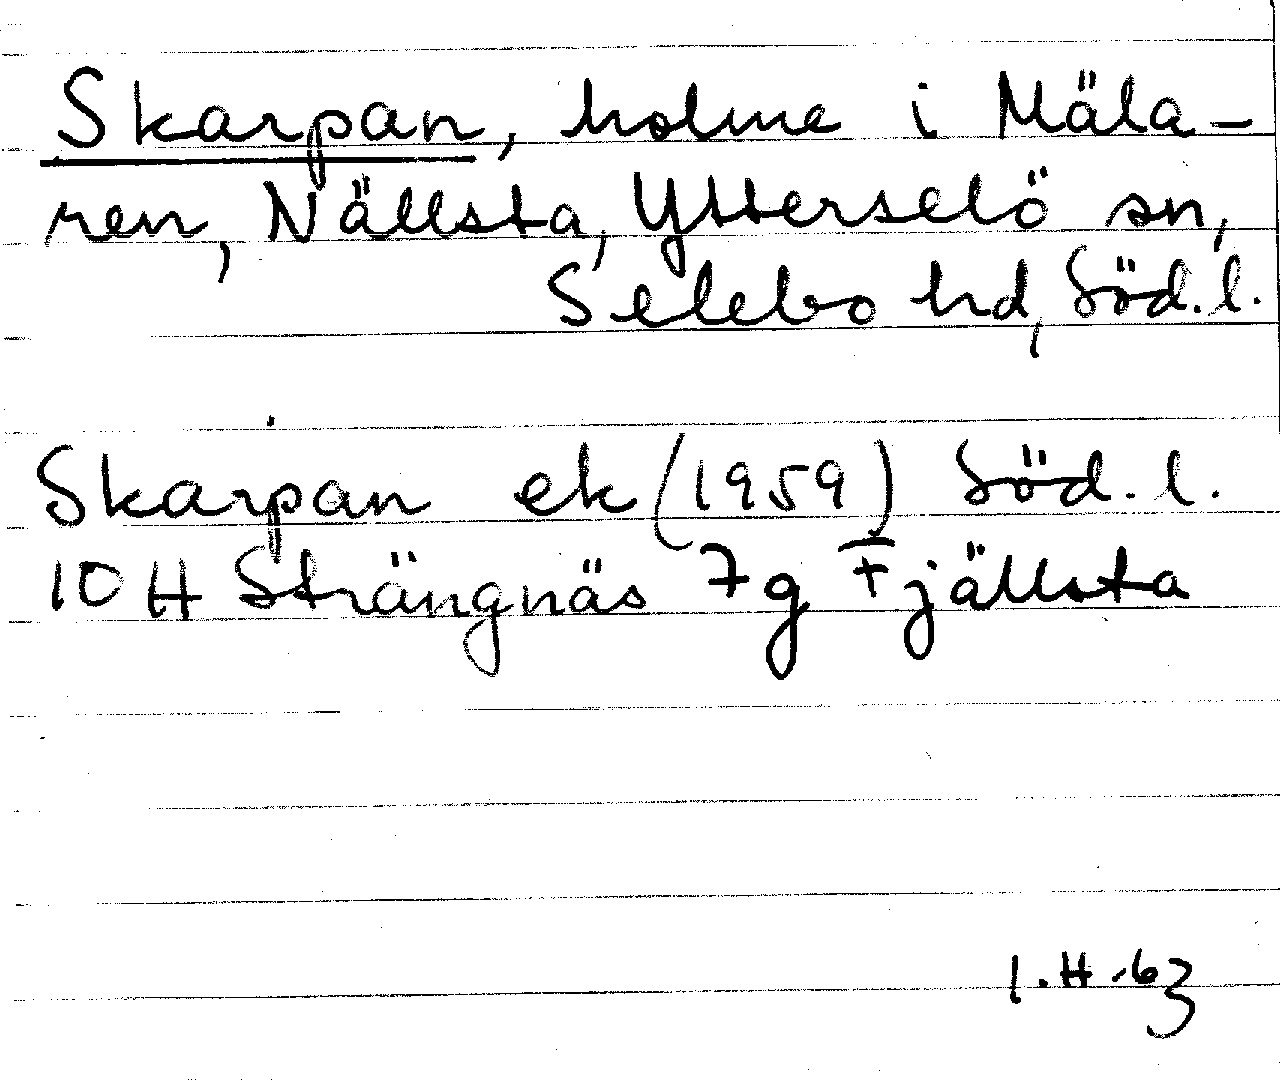 Skarpan, holme i Mäla-
ren, Nällsta, Ytterselö sn,
Selebo hd, Söd.l.
Skarpan ek (1959) Söd.l.
10 H Strängnäs 7g Fjällsta
I.H.63